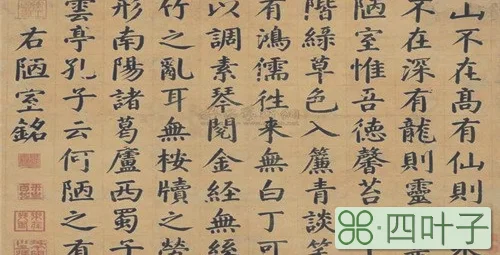 山不在高有仙則
不在深有龍則靈
陋室惟吾德馨苔
階綠草色入簾青談笑
有鴻儒往來無白丁可
以調素琴閱金經無絲
竹之亂耳無桉牘之勞
形南陽諸葛廬西蜀子
雲亭孔子云何陋之有
右陋室銘
四叶子